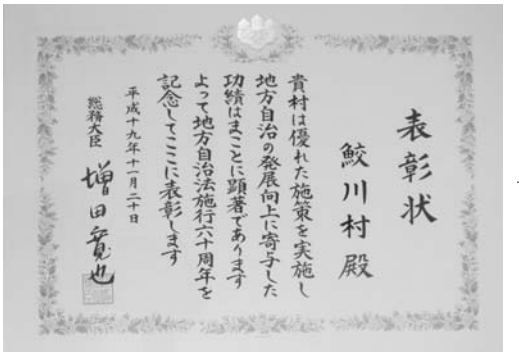 表彰状
鮫川村殿
貴村は優れた施策を実施し
地方自治の発展向上に寄与した
功績はまことに顕著であります
よって地方自治法施行六十周年を
記念してここに表彰します
平成十九年十一月二十日
総務大臣 増田寛也